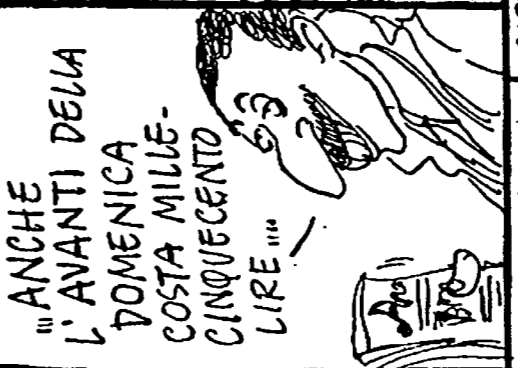 "" ANCHE
L'AVANTI DELLA
DOMENICA
COSTA MILLE-
CINQUECENTO
LIRE ""